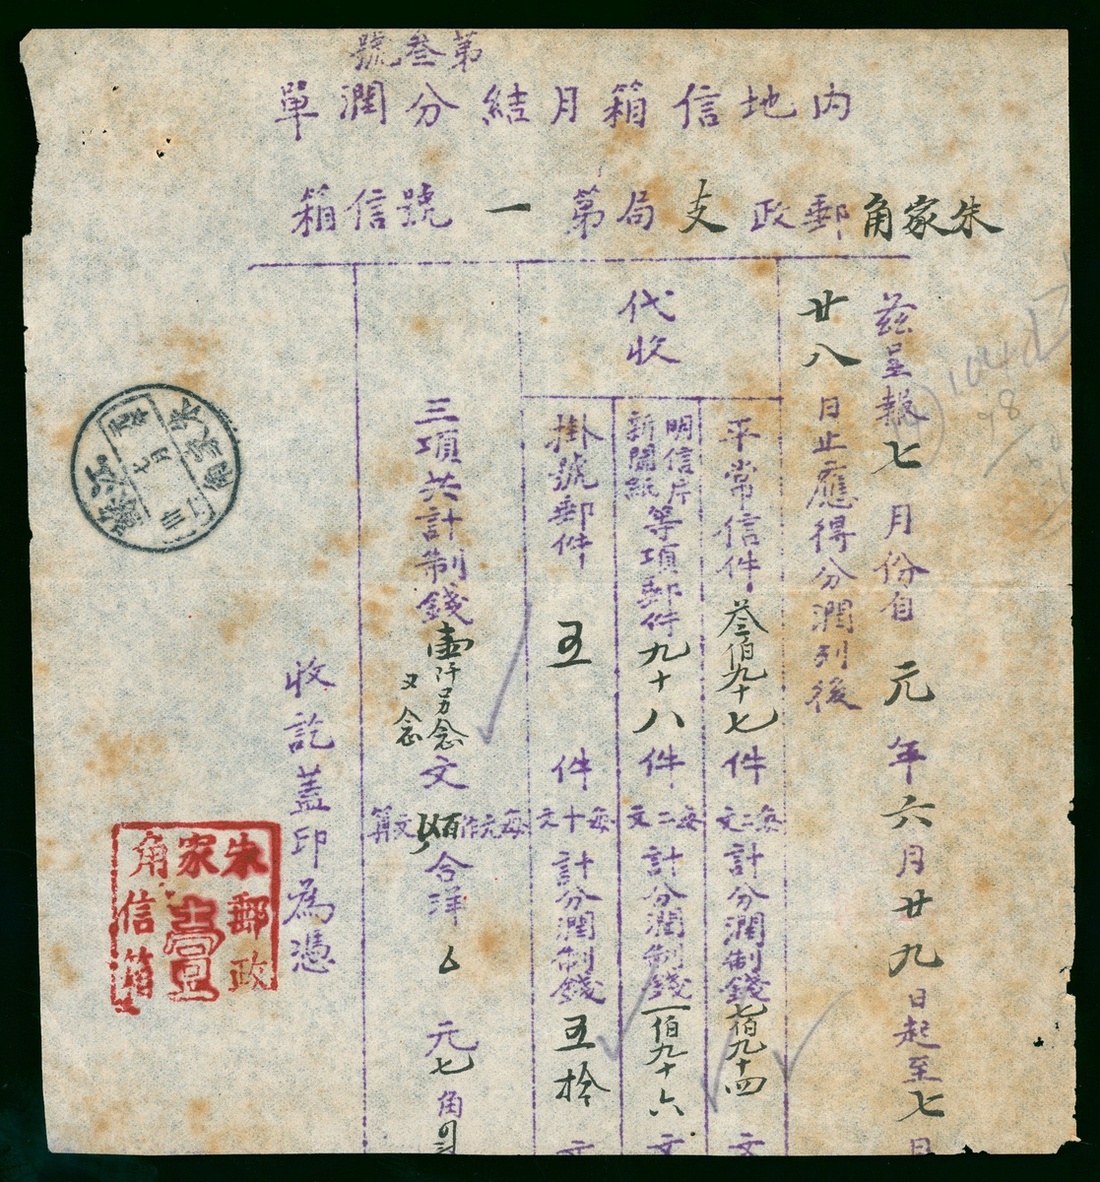 第叁號
內地信箱月結分潤單
朱家角郵政支局第一號信箱
茲呈報七月份自元年六月廿九日起至七月
廿八日止應得分潤列後
代收
平常信件叁佰九十七件每二文計分潤制錢七佰九十四文
明信片新聞紙等項郵件九十八件每二文計分潤制錢一佰九十六文
掛號郵件五件每十文計分潤制錢五拾文
三項共計制錢壹仟另念又念文
每元作百文算
合洋元七角
收訖蓋印為憑
朱郵政
家壹
角信箱
朱家角
七月
江蘇